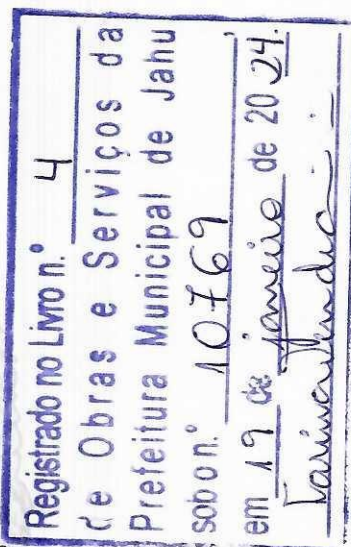 Registrado no Livro n.º 4
de Obras e Serviços da
Prefeitura Municipal de Jahu
sob o n.º 10769,
em 19 de janeiro de 2024.